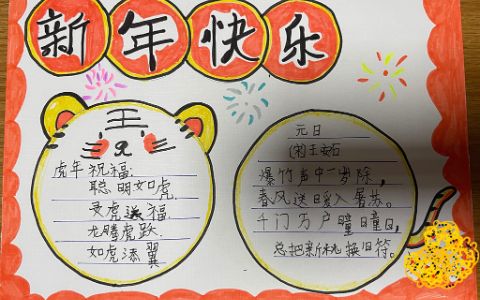 新年快乐
王
虎年祝福:
聪明如虎,
灵虎送福.
龙腾虎跃.
如虎添翼
元日
(宋)王安石
爆竹声中一岁除,
春风送暖入屠苏.
千门万户曈曈日,
总把新桃换旧符.